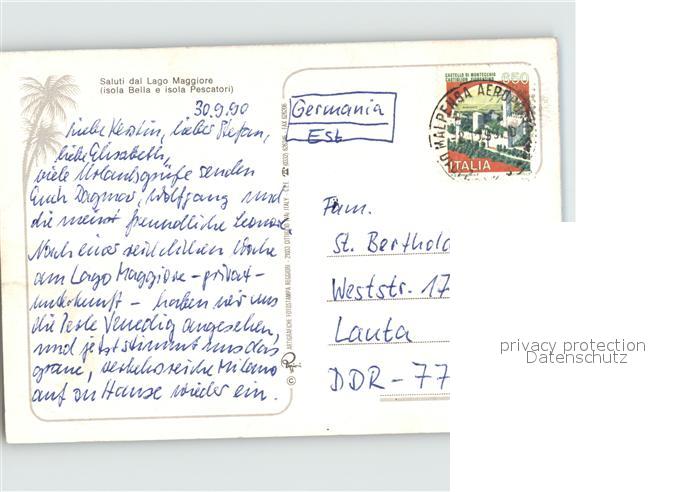 Saluti dal Lago Maggiore
(isola Bella e isola Pescatori)
30.9.90
Liebe Kerstin, lieber Stefan,
liebe Elisabeth,
viele Urlaubsgrüße senden
Euch Dagmar, Wolfgang und
die meist freundliche Leonore
Nach einer reichlichen Woche
am Lago Maggiore - privat-
unterkunft - haben wir uns
die Perle Venedig angesehen,
und jetzt stimmt uns das
graue, verkehrsreiche Milano
auf zu Hause wieder ein.
ARTIGRAFICHE FOTOSTAMPA REGGIORI
Germania
Est
CASTELLO DI MONTECCHIO
CASTIGLION FIORENTINO
650
ITALIA
MALPENSA AERO
Fam.
St. Berthold
Weststr. 17
Lauta
DDR - 77
privacy protection
Datenschutz